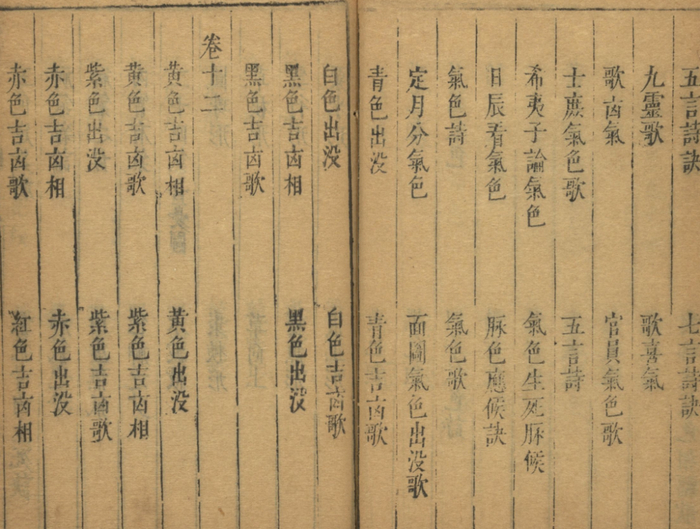 五言詩訣　七言詩訣
九靈歌　歌喜氣
歌凶氣　官員氣色歌
士庶氣色歌　五言詩
希夷子論氣色　氣色生死脈候
日辰看氣色　脈色應候訣
氣色詩　氣色歌
定月分氣色　面圖氣色出没歌
青色出没　青色吉凶歌
白色出没　白色吉凶歌
黑色吉凶相　黑色出没
黑色吉凶歌
卷十二
黄色吉凶相　黄色出没
黄色吉凶歌　紫色吉凶相
紫色出没　紫色吉凶歌
赤色吉凶相　赤色出没
赤色吉凶歌　紅色吉凶相